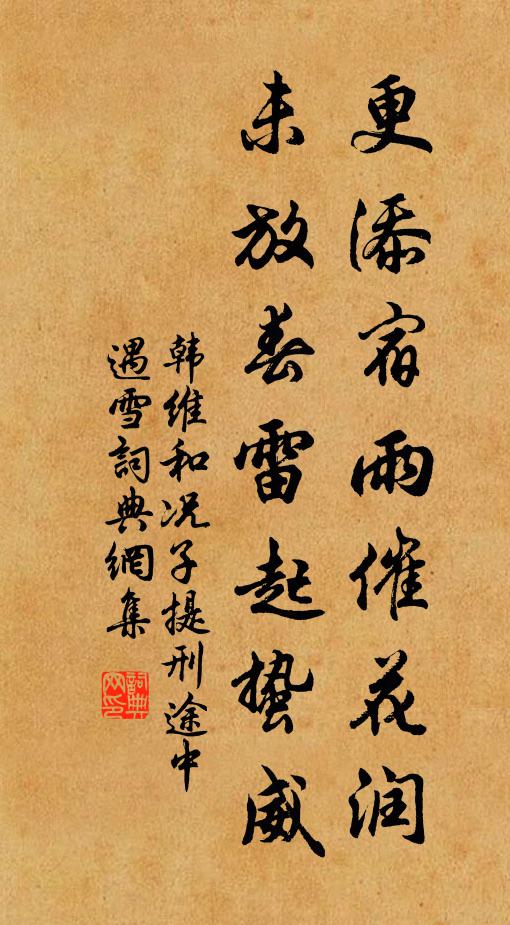 更添宿雨催花润
未放春雷起蛰威
韩维和况子提刑途中
遇雪詞典網集
詞典网印